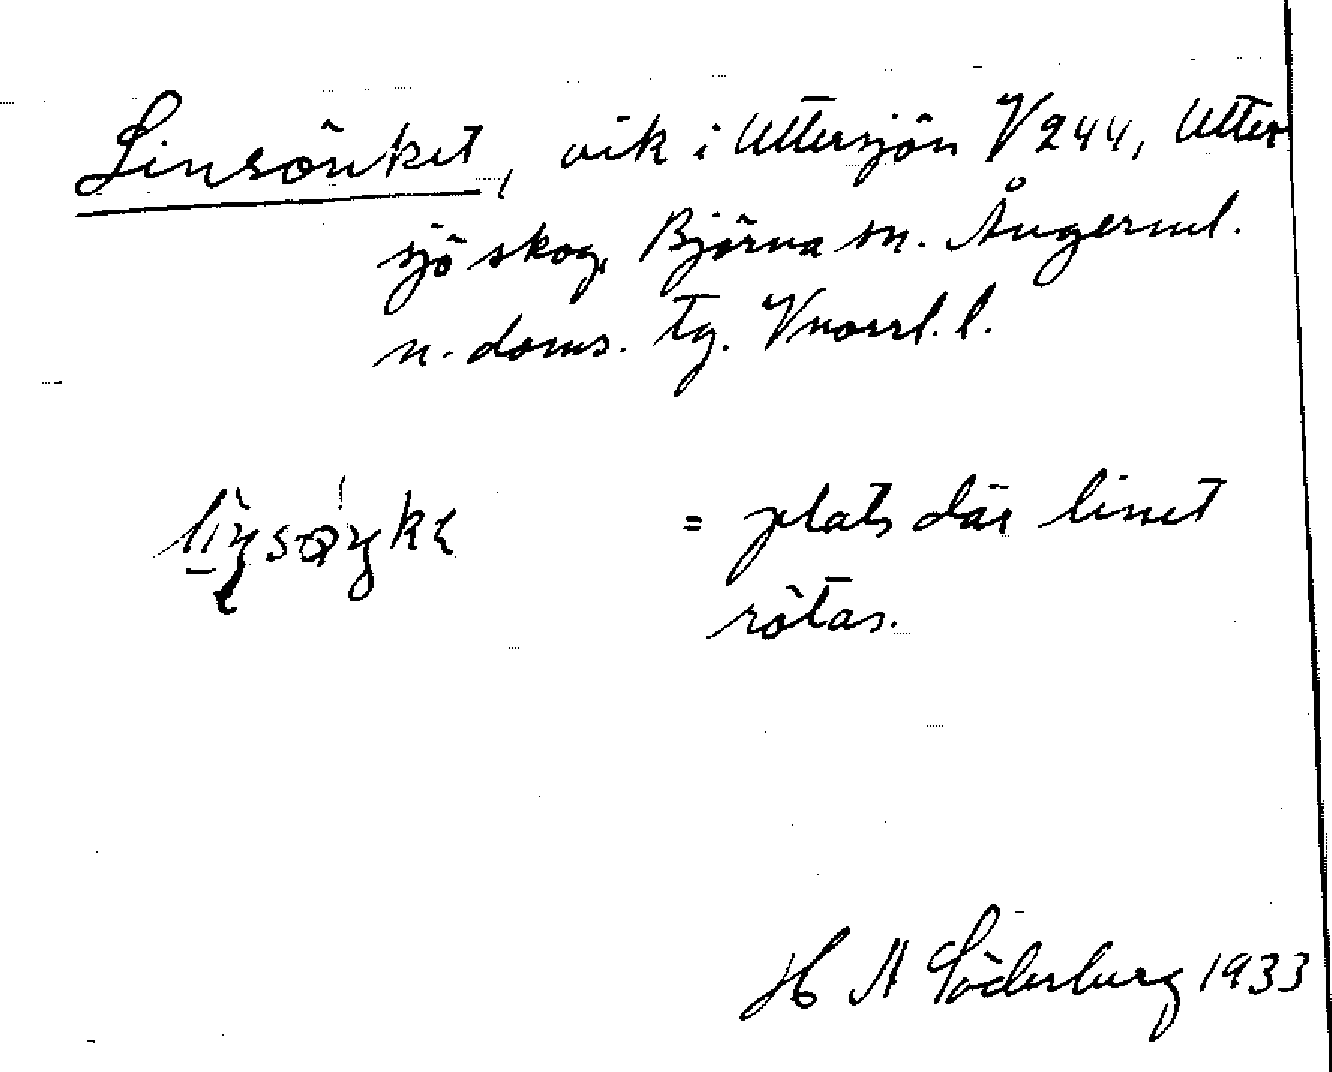 Linsönket, vik i Uttersjön V 244, Utter
sjö skog, Björna sn. Ångerml.
n. doms. tg. Vnorrl. l.
= plats där linet
rötas.
H A Söderberg 1933